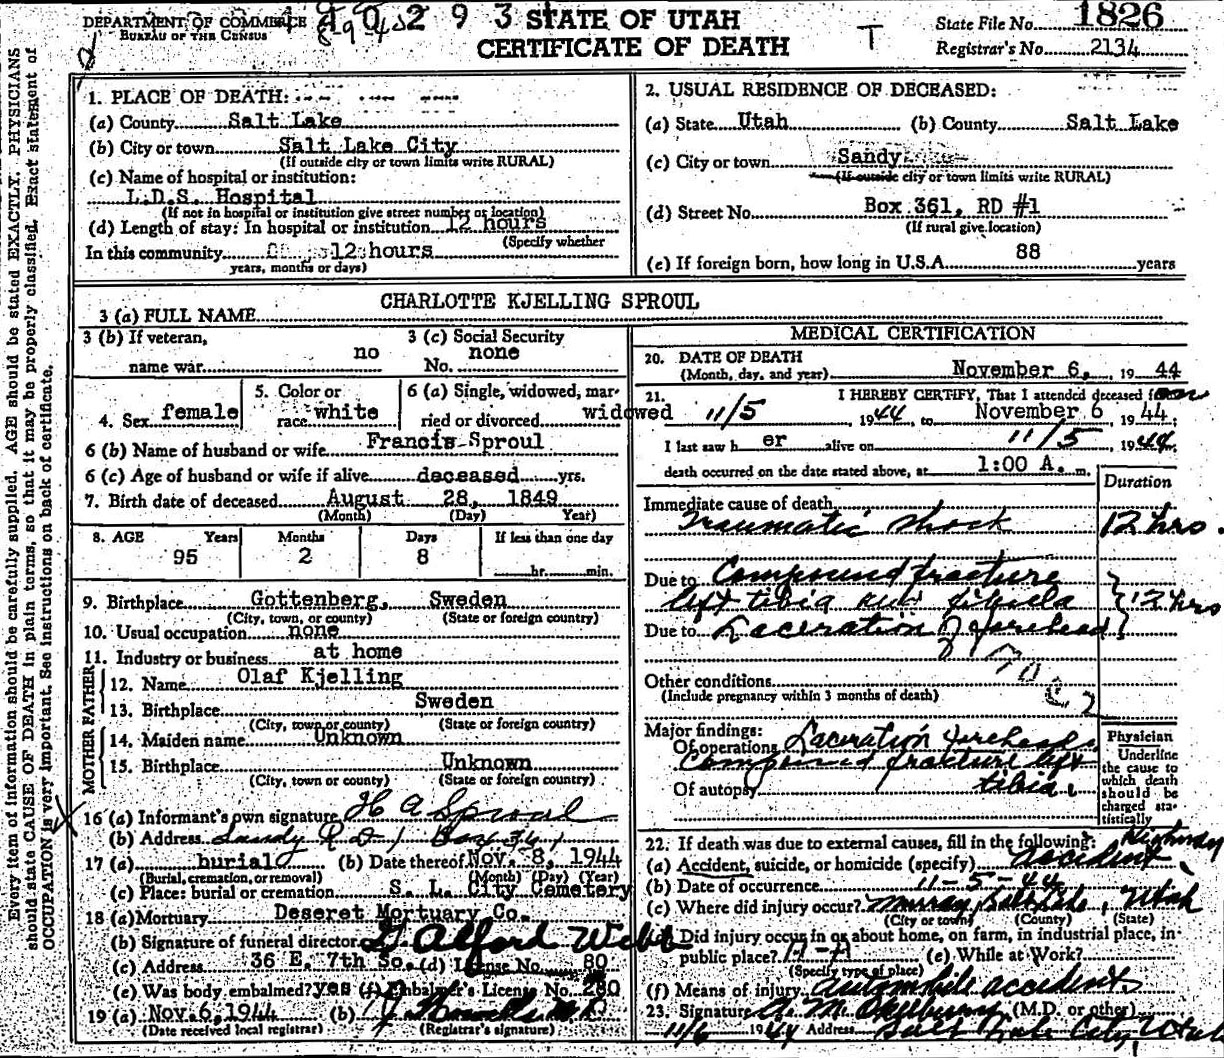 DEPARTMENT OF COMMERCE
BUREAU OF THE CENSUS
STATE OF UTAH
CERTIFICATE OF DEATH
T
State File No. 1826
Registrar's No. 2134
Every item of information should be carefully supplied. AGE should be stated EXACTLY. PHYSICIANS
should state CAUSE OF DEATH in plain terms, so that it may be properly classified. Exact statement of
OCCUPATION is very important. See instructions on back of certificate.
1. PLACE OF DEATH:
(a) County Salt Lake
(b) City or town Salt Lake City
(If outside city or town limits write RURAL)
(c) Name of hospital or institution:
L.D.S. Hospital
(If not in hospital or institution give street number or location)
(d) Length of stay: In hospital or institution 12 hours
(Specify whether
In this community 12 hours
years, months or days)
2. USUAL RESIDENCE OF DECEASED:
(a) State Utah (b) County Salt Lake
(c) City or town Sandy
(If outside city or town limits write RURAL)
(d) Street No. Box 361, RD #1
(If rural give location)
(e) If foreign born, how long in U.S.A. 88 years
3 (a) FULL NAME CHARLOTTE KJELLING SPROUL
3 (b) If veteran,
name war no
3 (c) Social Security
No. none
4. Sex female
5. Color or
race white
6 (a) Single, widowed, mar-
ried or divorced widowed
6 (b) Name of husband or wife Francis Sproul
6 (c) Age of husband or wife if alive deceased yrs.
7. Birth date of deceased August 28, 1849
(Month) (Day) Year)
8. AGE Years Months Days If less than one day
95 2 8 hr. min.
9. Birthplace Gottenberg, Sweden
(City, town, or county) (State or foreign country)
10. Usual occupation none
11. Industry or business at home
FATHER
12. Name Olaf Kjelling
13. Birthplace Sweden
(City, town or county) (State or foreign country)
MOTHER
14. Maiden name Unknown
15. Birthplace Unknown
(City, town or county) (State or foreign country)
16 (a) Informant's own signature H A Sproul
(b) Address Sandy R D 1 Box 361
17 (a) burial (b) Date thereof Nov. 8, 1944
(Burial, cremation, or removal) (Month) (Day) (Year)
(c) Place: burial or cremation S. L. City Cemetery
18 (a) Mortuary Deseret Mortuary Co.
(b) Signature of funeral director G Alford Webb
(c) Address 36 E. 7th So. (d) License No. 80
(e) Was body embalmed? yes (f) Embalmer's License No. 280
19 (a) Nov. 6, 1944 (b)
(Date received local registrar) (Registrar's signature)
MEDICAL CERTIFICATION
20. DATE OF DEATH
(Month, day, and year) November 6, 19 44
21. I HEREBY CERTIFY, That I attended deceased from
11/5 1944, to November 6 1944,
I last saw her alive on 11/5 1944,
death occurred on the date stated above, at 1:00 A. m.
Duration
Immediate cause of death
Traumatic shock 12 hrs.
Due to Compound fracture
left tibia and fibula 12 hrs
Due to Laceration of forehead
Other conditions
(Include pregnancy within 3 months of death)
Major findings:
Of operations Laceration forehead
Compound fracture left
Of autopsy tibia.
Physician
Underline
the cause to
which death
should be
charged sta-
tistically
22. If death was due to external causes, fill in the following:
(a) Accident, suicide, or homicide (specify) accident
(b) Date of occurrence 11-5-44
(c) Where did injury occur? Murray Salt Lake, Utah
(City or town) (County) (State)
Did injury occur in or about home, on farm, in industrial place, in
public place? (e) While at Work?
(Specify type of place)
(f) Means of injury automobile accidents
23. Signature (M.D. or other)
11/6 1944 Address Salt Lake City, Utah